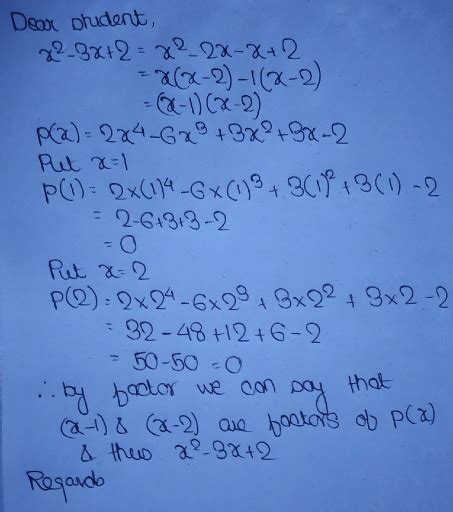 Dear student,
x²-3x+2 = x²-2x-x+2
= x(x-2)-1(x-2)
= (x-1)(x-2)
P(x) = 2x⁴-6x³+3x²+3x-2
Put x=1
P(1) = 2×(1)⁴-6×(1)³+3(1)²+3(1)-2
= 2-6+3+3-2
= 0
Put x=2
P(2) = 2×2⁴-6×2³+3×2²+3×2-2
= 32-48+12+6-2
= 50-50=0
∴ by factor we can say that
(x-1) & (x-2) are factors of P(x)
& thus x²-3x+2
Regards